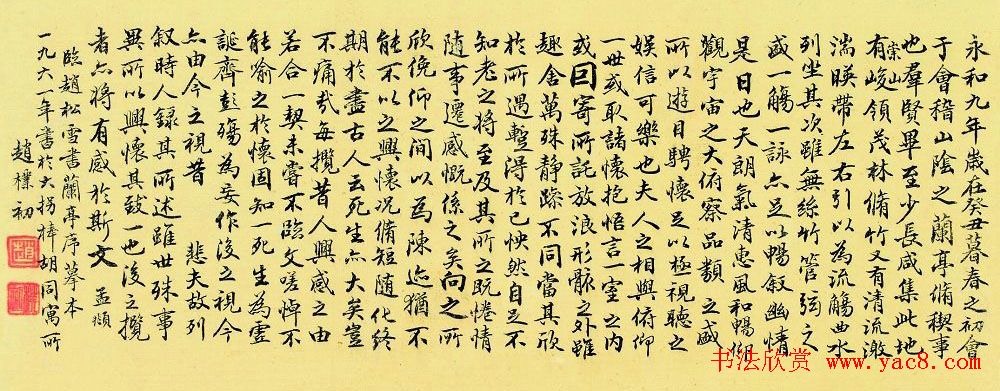 永和九年歲在癸丑暮春之初會
于會稽山陰之蘭亭脩稧事
也羣賢畢至少長咸集此地
有崇山峻領茂林脩竹又有清流激
湍暎帶左右引以為流觴曲水
列坐其次雖無絲竹管弦之
盛一觴一詠亦足以暢叙幽情
是日也天朗氣清惠風和暢仰
觀宇宙之大俯察品類之盛
所以遊目騁懷足以極視聽之
娛信可樂也夫人之相與俯仰
一世或取諸懷抱悟言一室之內
或因寄所託放浪形骸之外雖
趣舍萬殊静躁不同當其欣
於所遇蹔得於己怏然自足不
知老之將至及其所之既惓情
隨事遷感慨係之矣向之所
欣俛仰之間以為陳迹猶不
能不以之興懷況脩短隨化終
期於盡古人云死生亦大矣豈
不痛哉每攬昔人興感之由
若合一契未嘗不臨文嗟悼不
能喻之於懷固知一死生為虛
誕齊彭殤為妄作後之視今
亦由今之視昔 悲夫故列
叙時人錄其所述雖世殊事
異所以興懷其致一也後之攬
者亦將有感於斯文 孟頫
臨趙松雪書蘭亭序摹本
一九六一年書於大拐棒胡同寓所
趙樸初
书法欣赏
www.yac8.com